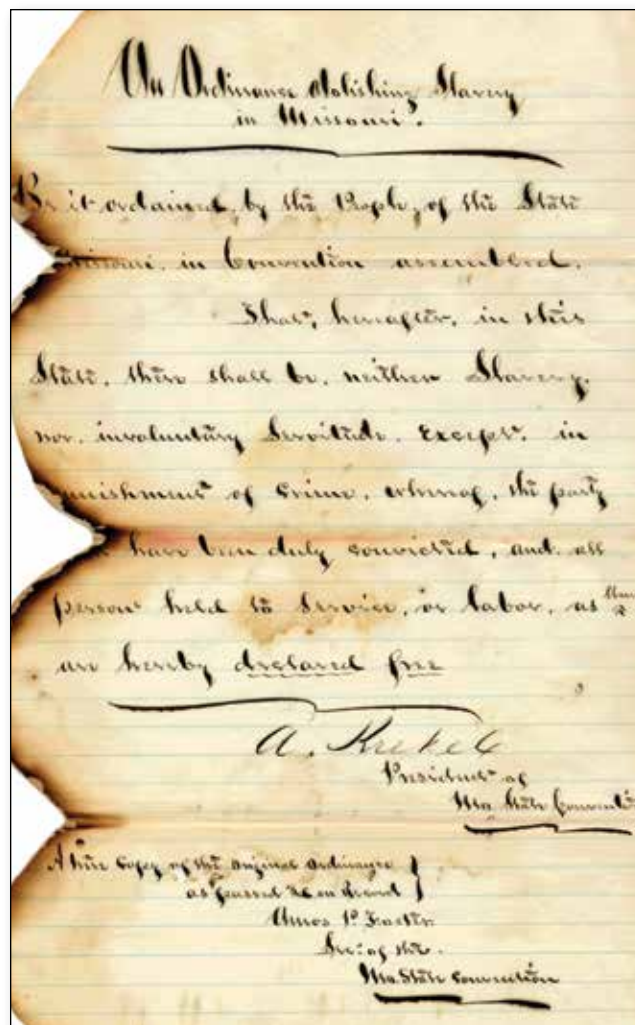 An Ordinance abolishing Slavery
in Missouri.
Be it ordained, by the People, of the State
Missouri, in Convention assembled,
That, hereafter, in this
State, there shall be, neither Slavery,
nor, involuntary Servitude, Except, in
unishment of crime, whereof, the party
have been duly convicted, and, all
persons held to Service, or labor, as
are hereby declared free
A. Krekel
President of
Mo. State Conventi
A true copy of the original ordinance
as passed & on record
Amos P. Foster.
Sec. of the
Mo. State convention